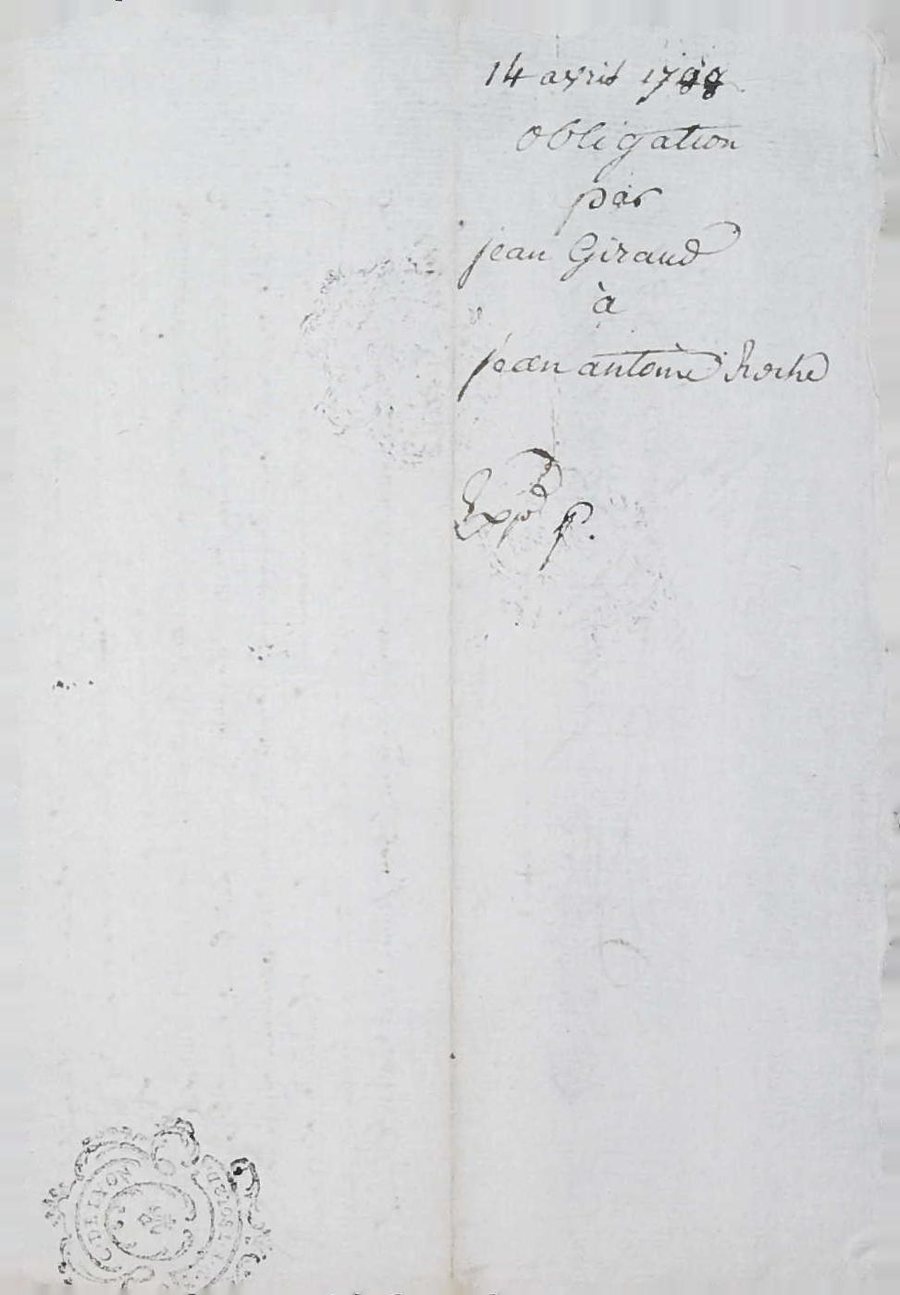 14 avril 1788
obligation
par
jean Giraud
à
jean antoine Roche
Expéd p.
DE LYON